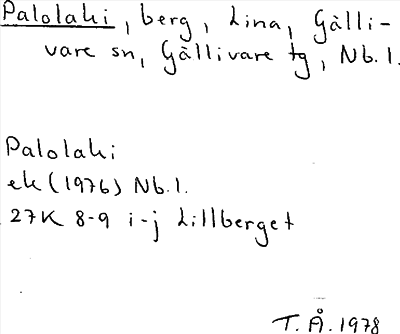 Palolaki, berg, Lina, Gälli-
vare sn, Gällivare tg, Nb.l.
Palolaki
ek (1976) Nb.l.
27K 8-9 i-j Lillberget
T.Å.1978